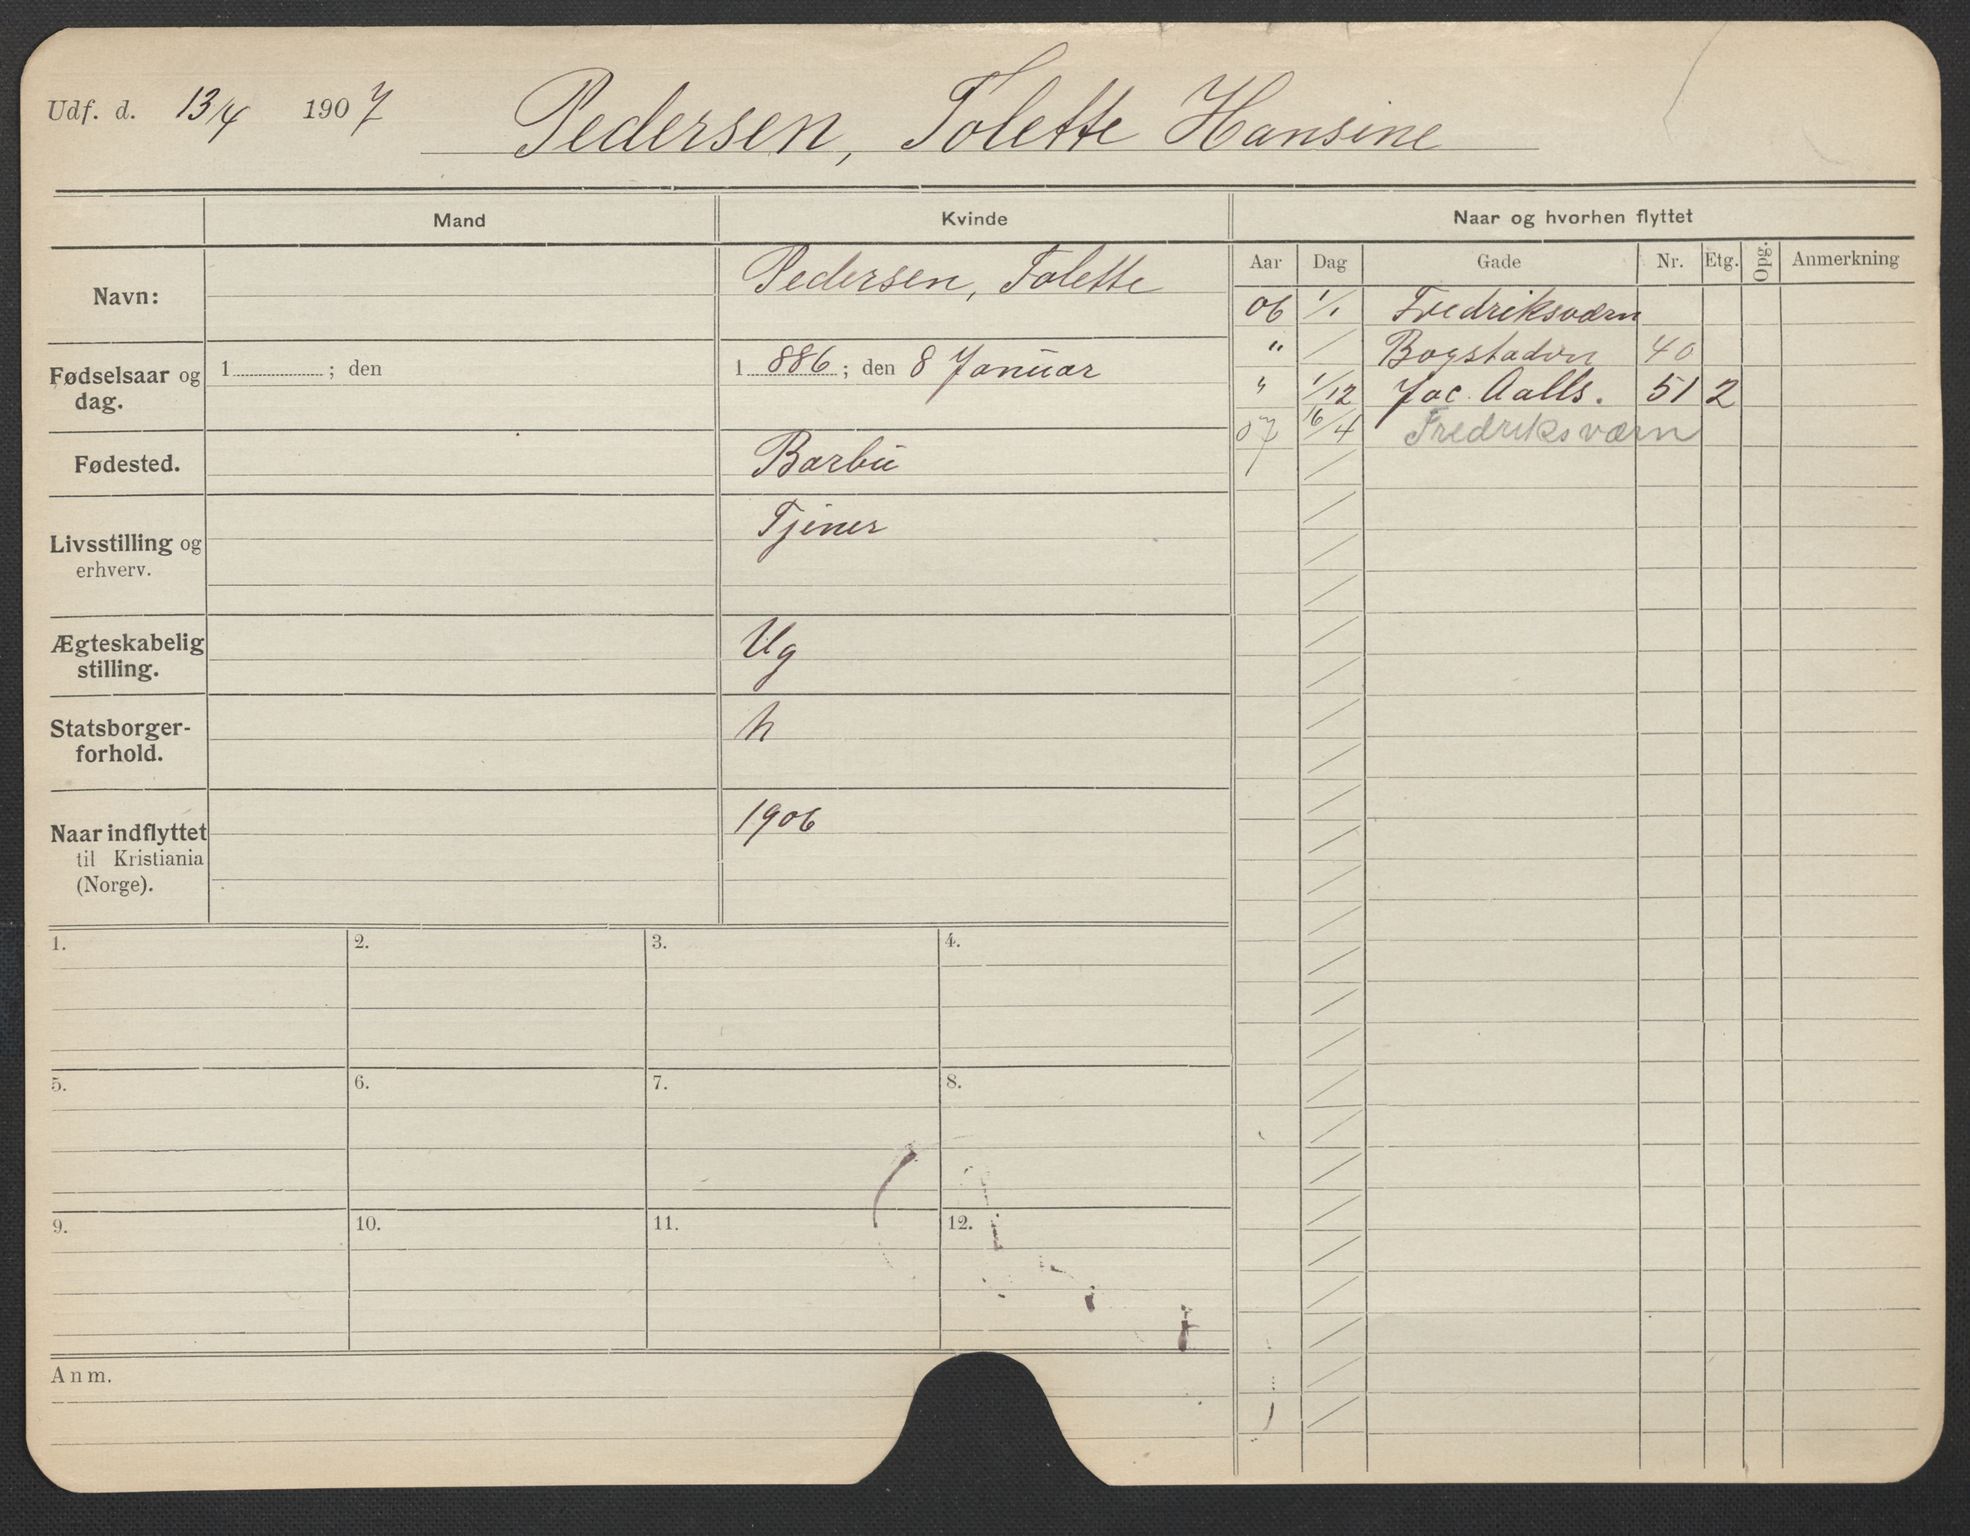 Udf. d. 13/4 1907 Pedersen, Tolette Hansine
Mand Kvinde Naar og hvorhen flyttet
Aar Dag Gade Nr. Etg. Opg. Anmerkning
Navn: Pedersen, Tolette
06 1/1 Fredriksværn
" / Bogstadvn 40
" 1/12 Jac. Aalls. 51 2
07 16/4 Fredriksværn
Fødselsaar og 1 ; den 1 886 ; den 8 Januar
dag.
Fødested. Barbu
Livsstilling og Tjener
erhverv.
Ægteskabelig Ug
stilling.
Statsborger- n
forhold.
Naar indflyttet 1906
til Kristiania
(Norge).
1. 2. 3. 4.
5. 6. 7. 8.
9. 10. 11. 12.
Anm.